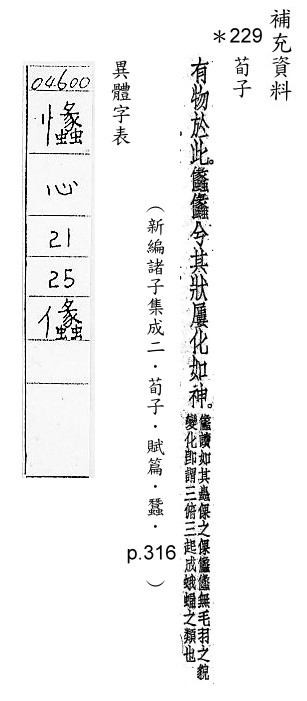 補充資料
＊229
荀子
有物於此。㒩㒩兮其狀屢化如神。
㒩讀如其蟲倮之倮㒩㒩無毛羽之貌
變化卽謂三俯三起成蛾蛹之類也
（新編諸子集成二．荀子．賦篇．蠶．p.316）
異體字表
04600
心
21
25
㒩